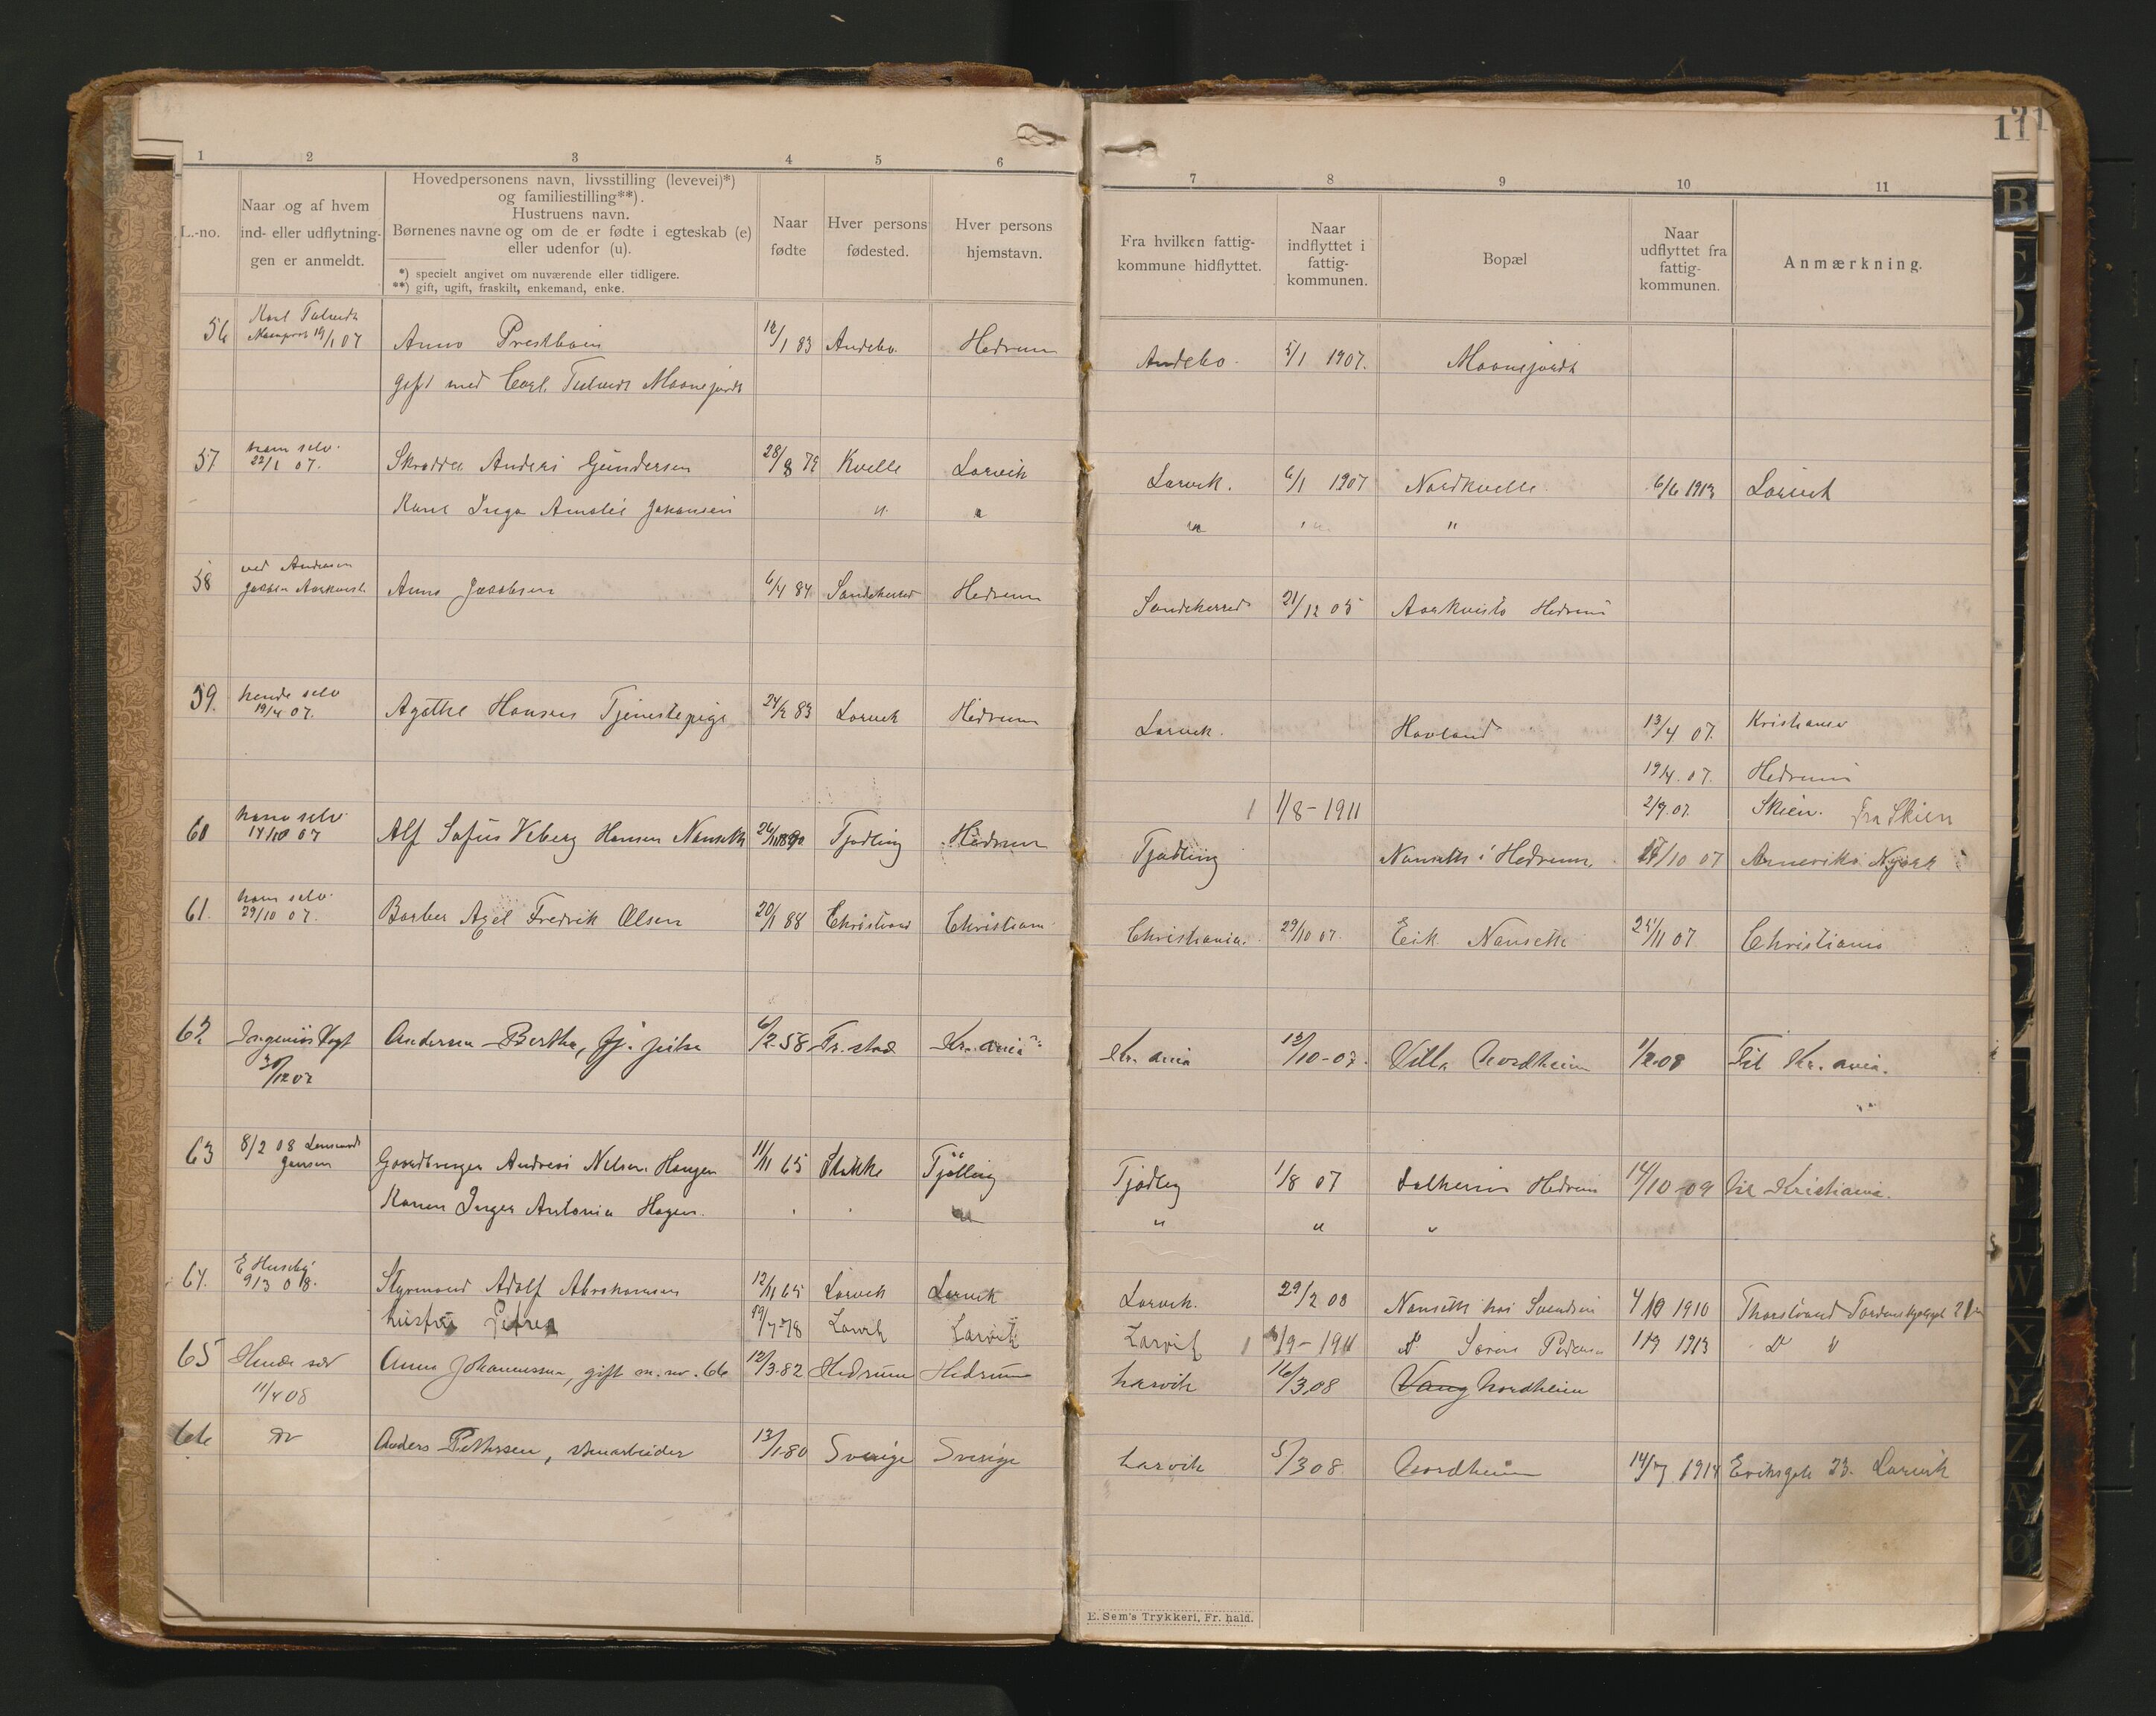 1 2 3 4 5 6
L.-no.
Naar og af hvem
ind- eller udflytnin-
gen er anmeldt.
Hovedpersonens navn, livsstilling (levevei)*)
og familiestilling**).
Hustruens navn.
Børnenes navne og om de er fødte i egteskab (e)
eller udenfor (u).
*) specielt angivet om nuværende eller tidligere.
**) gift, ugift, fraskilt, enkemand, enke.
Naar
fødte
Hver persons
fødested.
Hver persons
hjemstavn.
56 19/1 07 Anna 12/1 83 Andebo. Hedrum
gift med Carl
57 ham selv. 22/1 07. Skrædder Anders Gundersen 28/8 79 Kvelle Larvik
Inga Amalie Johansen " "
58 ved Andersen
Anna Jacobsen 6/4 84 Sandeherred Hedrum
59. hende selv 19/4 07. Agathe Hansen Tjenestepige 24/2 83 Larvik Hedrum
60 ham selv. 17/10 07 Alf Sofus Hansen Nanseth 26/11 1890 Tjødling Hedrum
61. ham selv. 29/10 07. Barber Axel Fredrik Olsen 20/1 88 Christiania Christiania
62 Ingeniør Vogt Andersen Bertha, 6/2-58 Fr.stad Kr.ania
30/12 07
63 8/2 08 Lensmand
Jensen
Andreas Nelsen Haugen 11/11 65 Stokke Tjølling
Karen Inger Antonia Hagen. "
64. E Huseby 9/3 08. Styrmand Adolf Abrahamsen 12/11 65 Larvik Larvik
hustru Petrea 19/7-78 Larvik Larvik
65 Hende selv Anna Johannessen, gift m. nr. 66 12/3.82 Hedrum Hedrum
11/4 08
66 do Anders Pettersen, stenarbeider 13/1-80 Sverige Sverige
11
7 8 9 10 11
Fra hvilken fattig-
kommune hidflyttet.
Naar
indflyttet i
fattig-
kommunen.
Bopæl
Naar
udflyttet fra
fattig-
kommunen.
Anmærkning.
Andebo. 5/1 1907.
Larvik. 6/1 1907 Nordkvelle. 6/6 1913 Larvik
" " "
Sandeherred 21/12 05 Aarkvisla Hedrum
Larvik. Havland 13/4 07. Kristiania
19/4. 07. Hedrum
1/8-1911 2/9. 07. Skien. Fra Skien
Tjødling Nanseth i Hedrum. 17/10 07 Amerika
Christiania. 29/10 07. Eik Nanseth 25/11 07 Christiania
Kr. ania 12/10-07. Villa Nordheim 1/2 08 Til Kr. ania.
Tjødling 1/8 07 Solheim Hedrum 14/10-09 til Kristiania.
" " "
Larvik. 29/2 08 Nanseth hos Svendsen 1910 Thorstrand
Larvik /9-1911 Søren Pedersen 1913
Larvik 16/3,08 Vang Nordheim
Larvik 5/3 08 Nordheim 14/7 1914 23. Larvik
E. Sem's Trykkeri, Fr. hald.
B
W
X
Y
Z
Æ
Ø